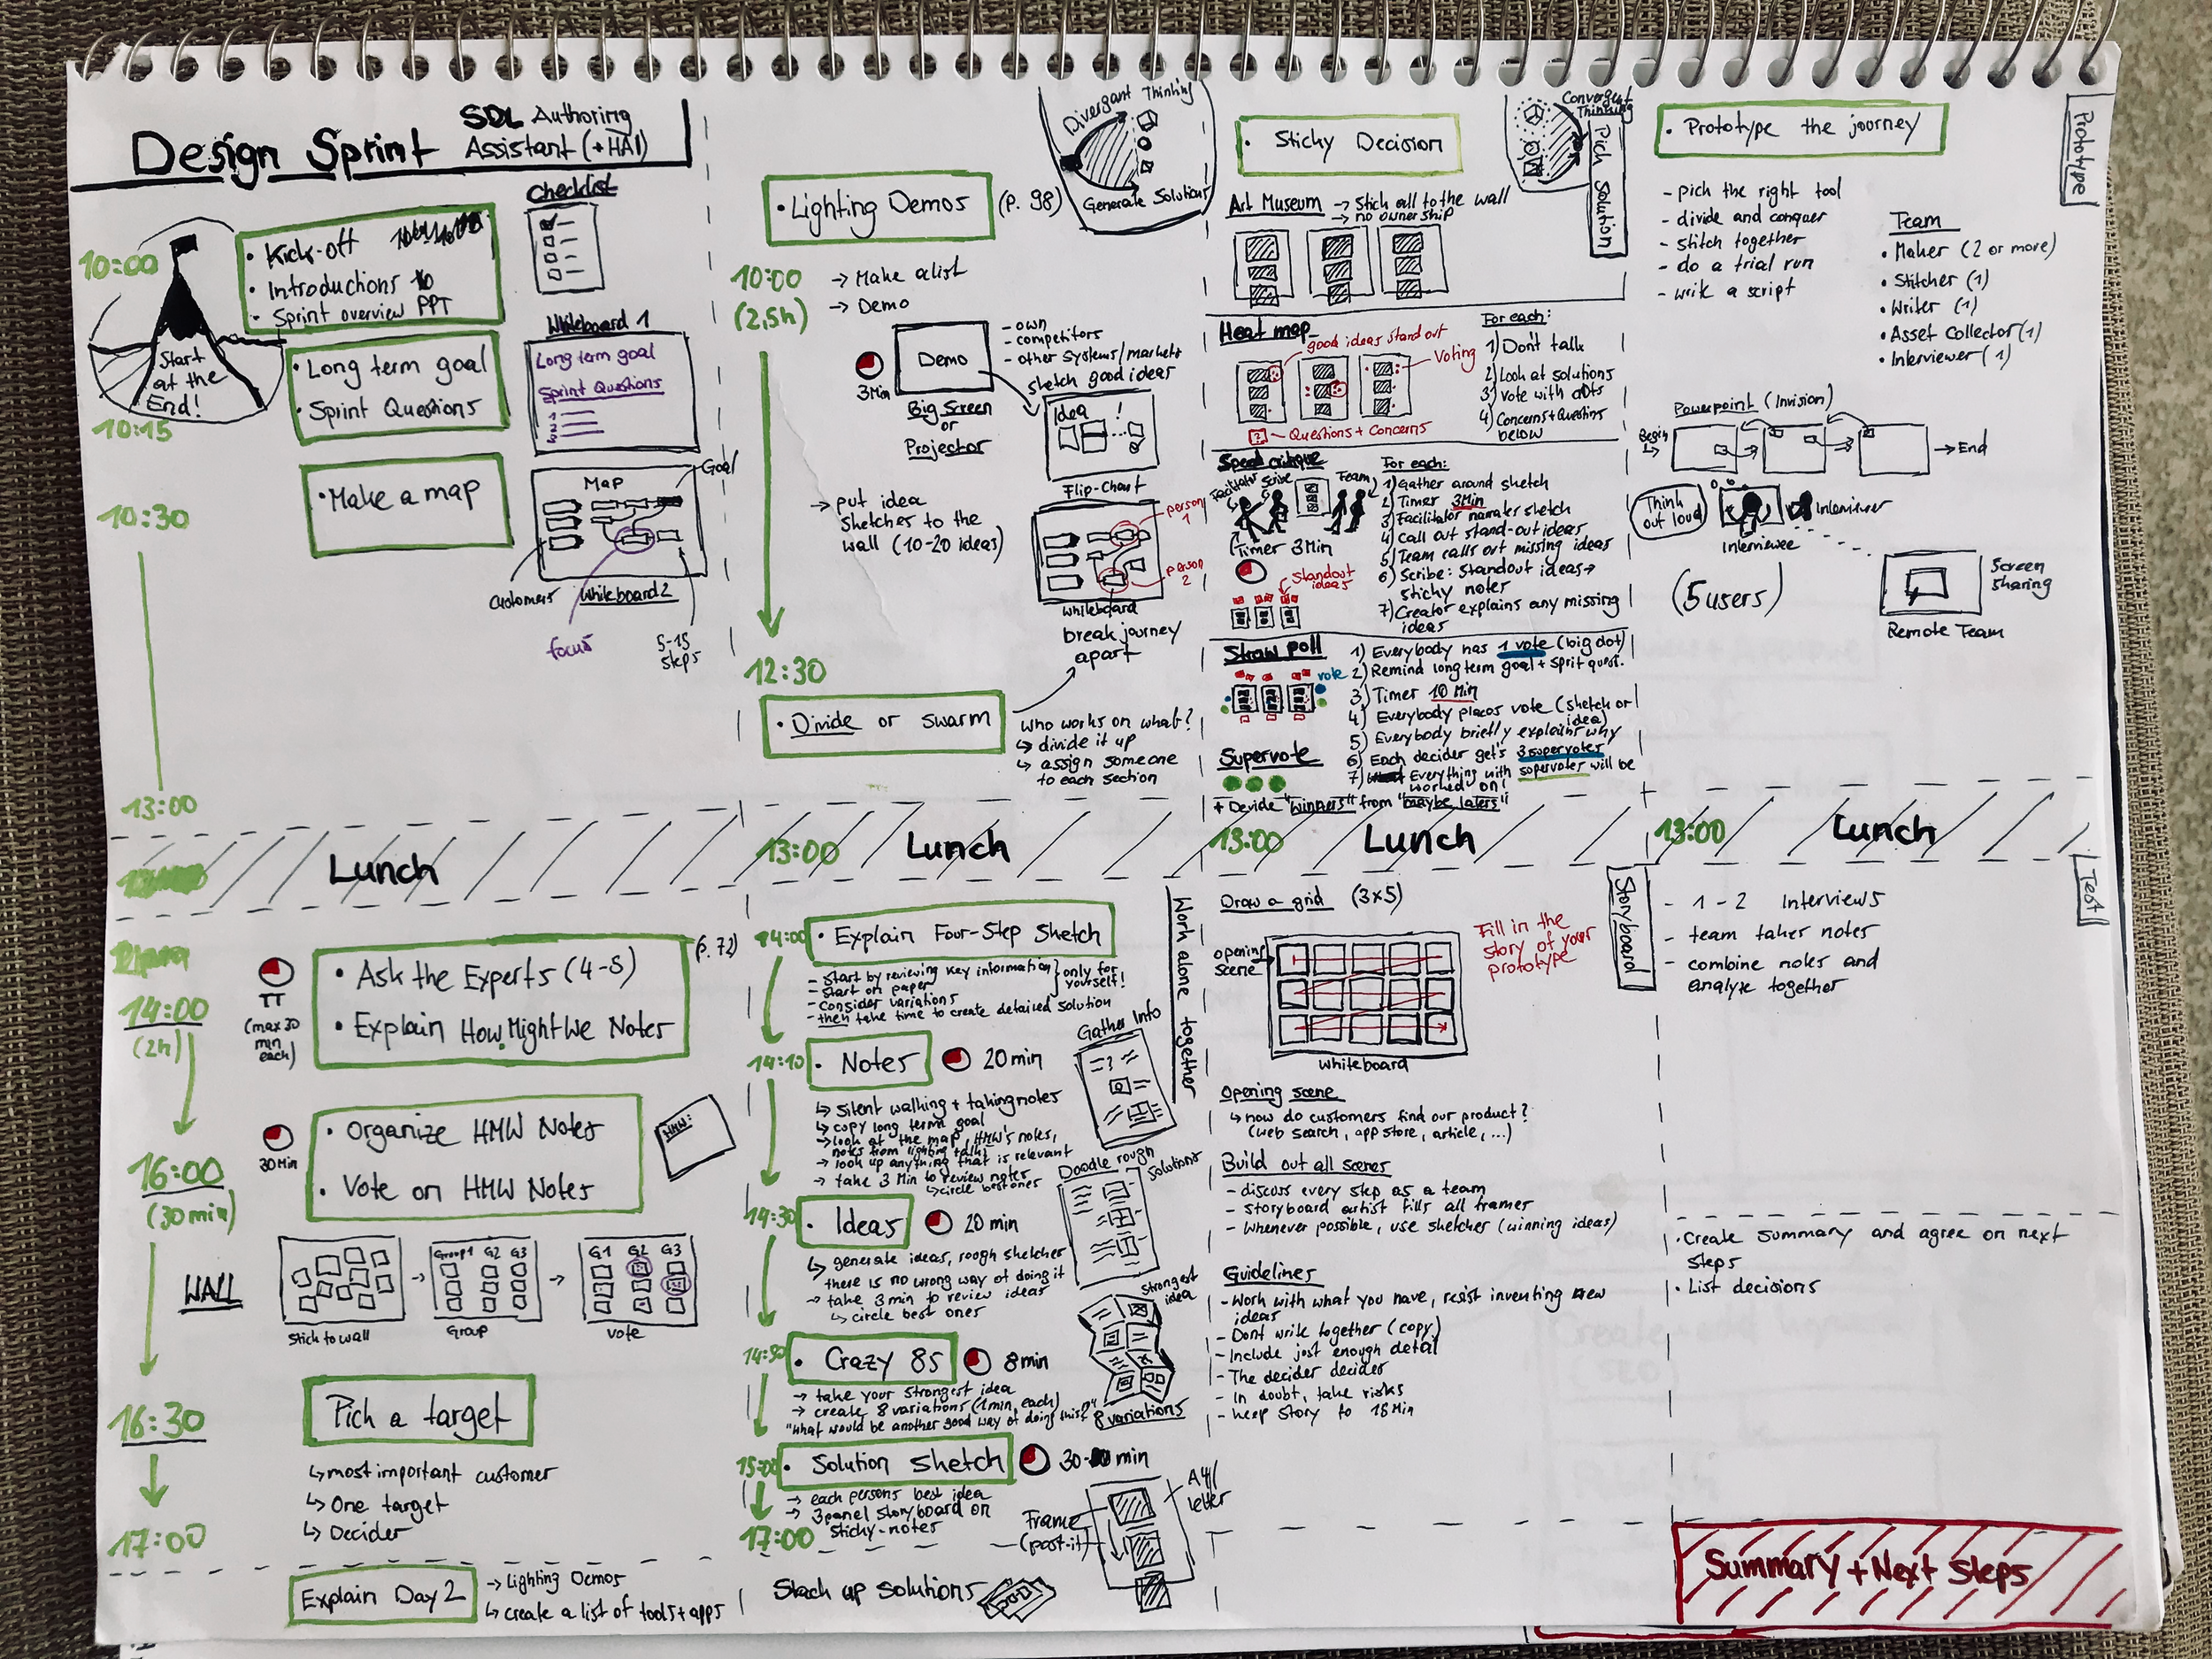 Design Sprint
SDL Authoring
Assistant (+HAI)
10:00
Start
at the
End!
• Kick-off
• Introductions
• Sprint overview PPT
Checklist
10:15
• Long term goal
• Sprint Questions
Whiteboard 1
Long term goal
Sprint Questions
1
2
3
10:30
• Make a map
Map
Goal
Customers
Whiteboard 2
focus
5-15
steps
13:00
Lunch
14:00
(2h)
(max 30
min
each)
• Ask the Experts (4-5)
• Explain How Might We Notes
(p. 72)
30 Min
• Organize HMW Notes
• Vote on HMW Notes
HMW:
16:00
(30 min)
WALL
Stick to wall
Group 1 G2 G3
Group
G1 G2 G3
vote
16:30
Pick a target
↳ most important customer
↳ One target
↳ Decider
17:00
Explain Day 2
→ Lighting Demos
↳ create a list of tools + apps
• Lighting Demos
(p. 98)
Divergant Thinking
Generate Solutions
10:00
(2,5h)
→ Make a list
→ Demo
3 Min
Demo
Big Screen
or
Projector
- own
- competitors
- other systems/markets
sketch good ideas
Idea !
Flip-Chart
→ put idea
sketches to the
wall (10-20 ideas)
person
1
person
2
whiteboard
break journey
apart
12:30
• Divide or swarm
Who works on what?
↳ divide it up
↳ assign someone
to each section
13:00
Lunch
14:00
• Explain Four-Step Sketch
- Start by reviewing key information
- Start on paper
- Consider variations
- then take time to create detailed solution
only for
yourself!
Work alone together
14:10
• Notes
20 min
Gather Info
↳ silent walking + taking notes
↳ copy long term goal
→ look at the map, HMW's notes,
notes from lighting talks
→ look up anything that is relevant
→ take 3 Min to review notes
↳ circle best ones
14:30
• Ideas
20 min
Doodle rough
solutions
↳ generate ideas, rough sketches
there is no wrong way of doing it
→ take 3 min to review ideas
↳ circle best ones
14:50
• Crazy 8s
8 min
Strongest
idea
→ take your strongest idea
→ create 8 variations (1 min each)
"What would be another good way of doing this?"
8 variations
15:00
• Solution Sketch
30 min
→ each persons best idea
→ 3 panel storyboard on
sticky-notes
A4//
letter
Frame
(post-it)
17:00
Stack up solutions
• Sticky Decision
Convergent
Thinking
Pick Solution
Art Museum → Stick all to the wall
→ no ownership
Heat map
good ideas stand out
Voting
? - Questions + Concerns
For each:
1) Don't talk
2) Look at solutions
3) Vote with dots
4) Concerns + Questions
below
Speed critique
Facilitator Scribe Team
Timer 3 Min
Standout
ideas
For each:
1) Gather around sketch
2) Timer 3 Min
3) Facilitator narrates sketch
4) Call out stand-out ideas
5) Team calls out missing ideas
6) Scribe: Standout ideas →
sticky notes
7) Creator explains any missing
ideas
Straw poll
vote
1) Everybody has 1 vote (big dot)
2) Remind long term goal + Sprit quest.
3) Timer 10 Min
4) Everybody places vote (sketch or
idea)
5) Everybody briefly explains why
6) Each decider get's 3 supervotes
7) Everything with supervotes will be
worked on!
Supervote
+ Devide "winners" from "maybe laters"
13:00
Lunch
Storyboard
Draw a grid (3x5)
opening
scene
Fill in the
story of your
prototype
whiteboard
Opening scene
↳ how do customers find our product?
(web search, app store, article, ...)
Build out all scenes
- discuss every step as a team
- Storyboard artist fills all frames
- Whenever possible, use sketches (winning ideas)
Guidelines
- Work with what you have, resist inventing new
ideas
- Dont write together (copy)
- Include just enough detail
- The decider decides
- In doubt, take risks
- keep story to 18 Min
• Prototype the journey
Prototype
- pick the right tool
- divide and conquer
- stitch together
- do a trial run
- write a script
Team
• Maker (2 or more)
• Stitcher (1)
• Writer (1)
• Asset Collector (1)
• Interviewer (1)
Powerpoint (Invision)
Begin
→ End
Think
out loud
Interviewer
Interviewee
(5 users)
Screen
sharing
Remote Team
13:00
Lunch
Test
- 1-2 Interviews
- team takes notes
- combine notes and
analyze together
• Create summary and agree on next
steps
• List decisions
Summary + Next Steps